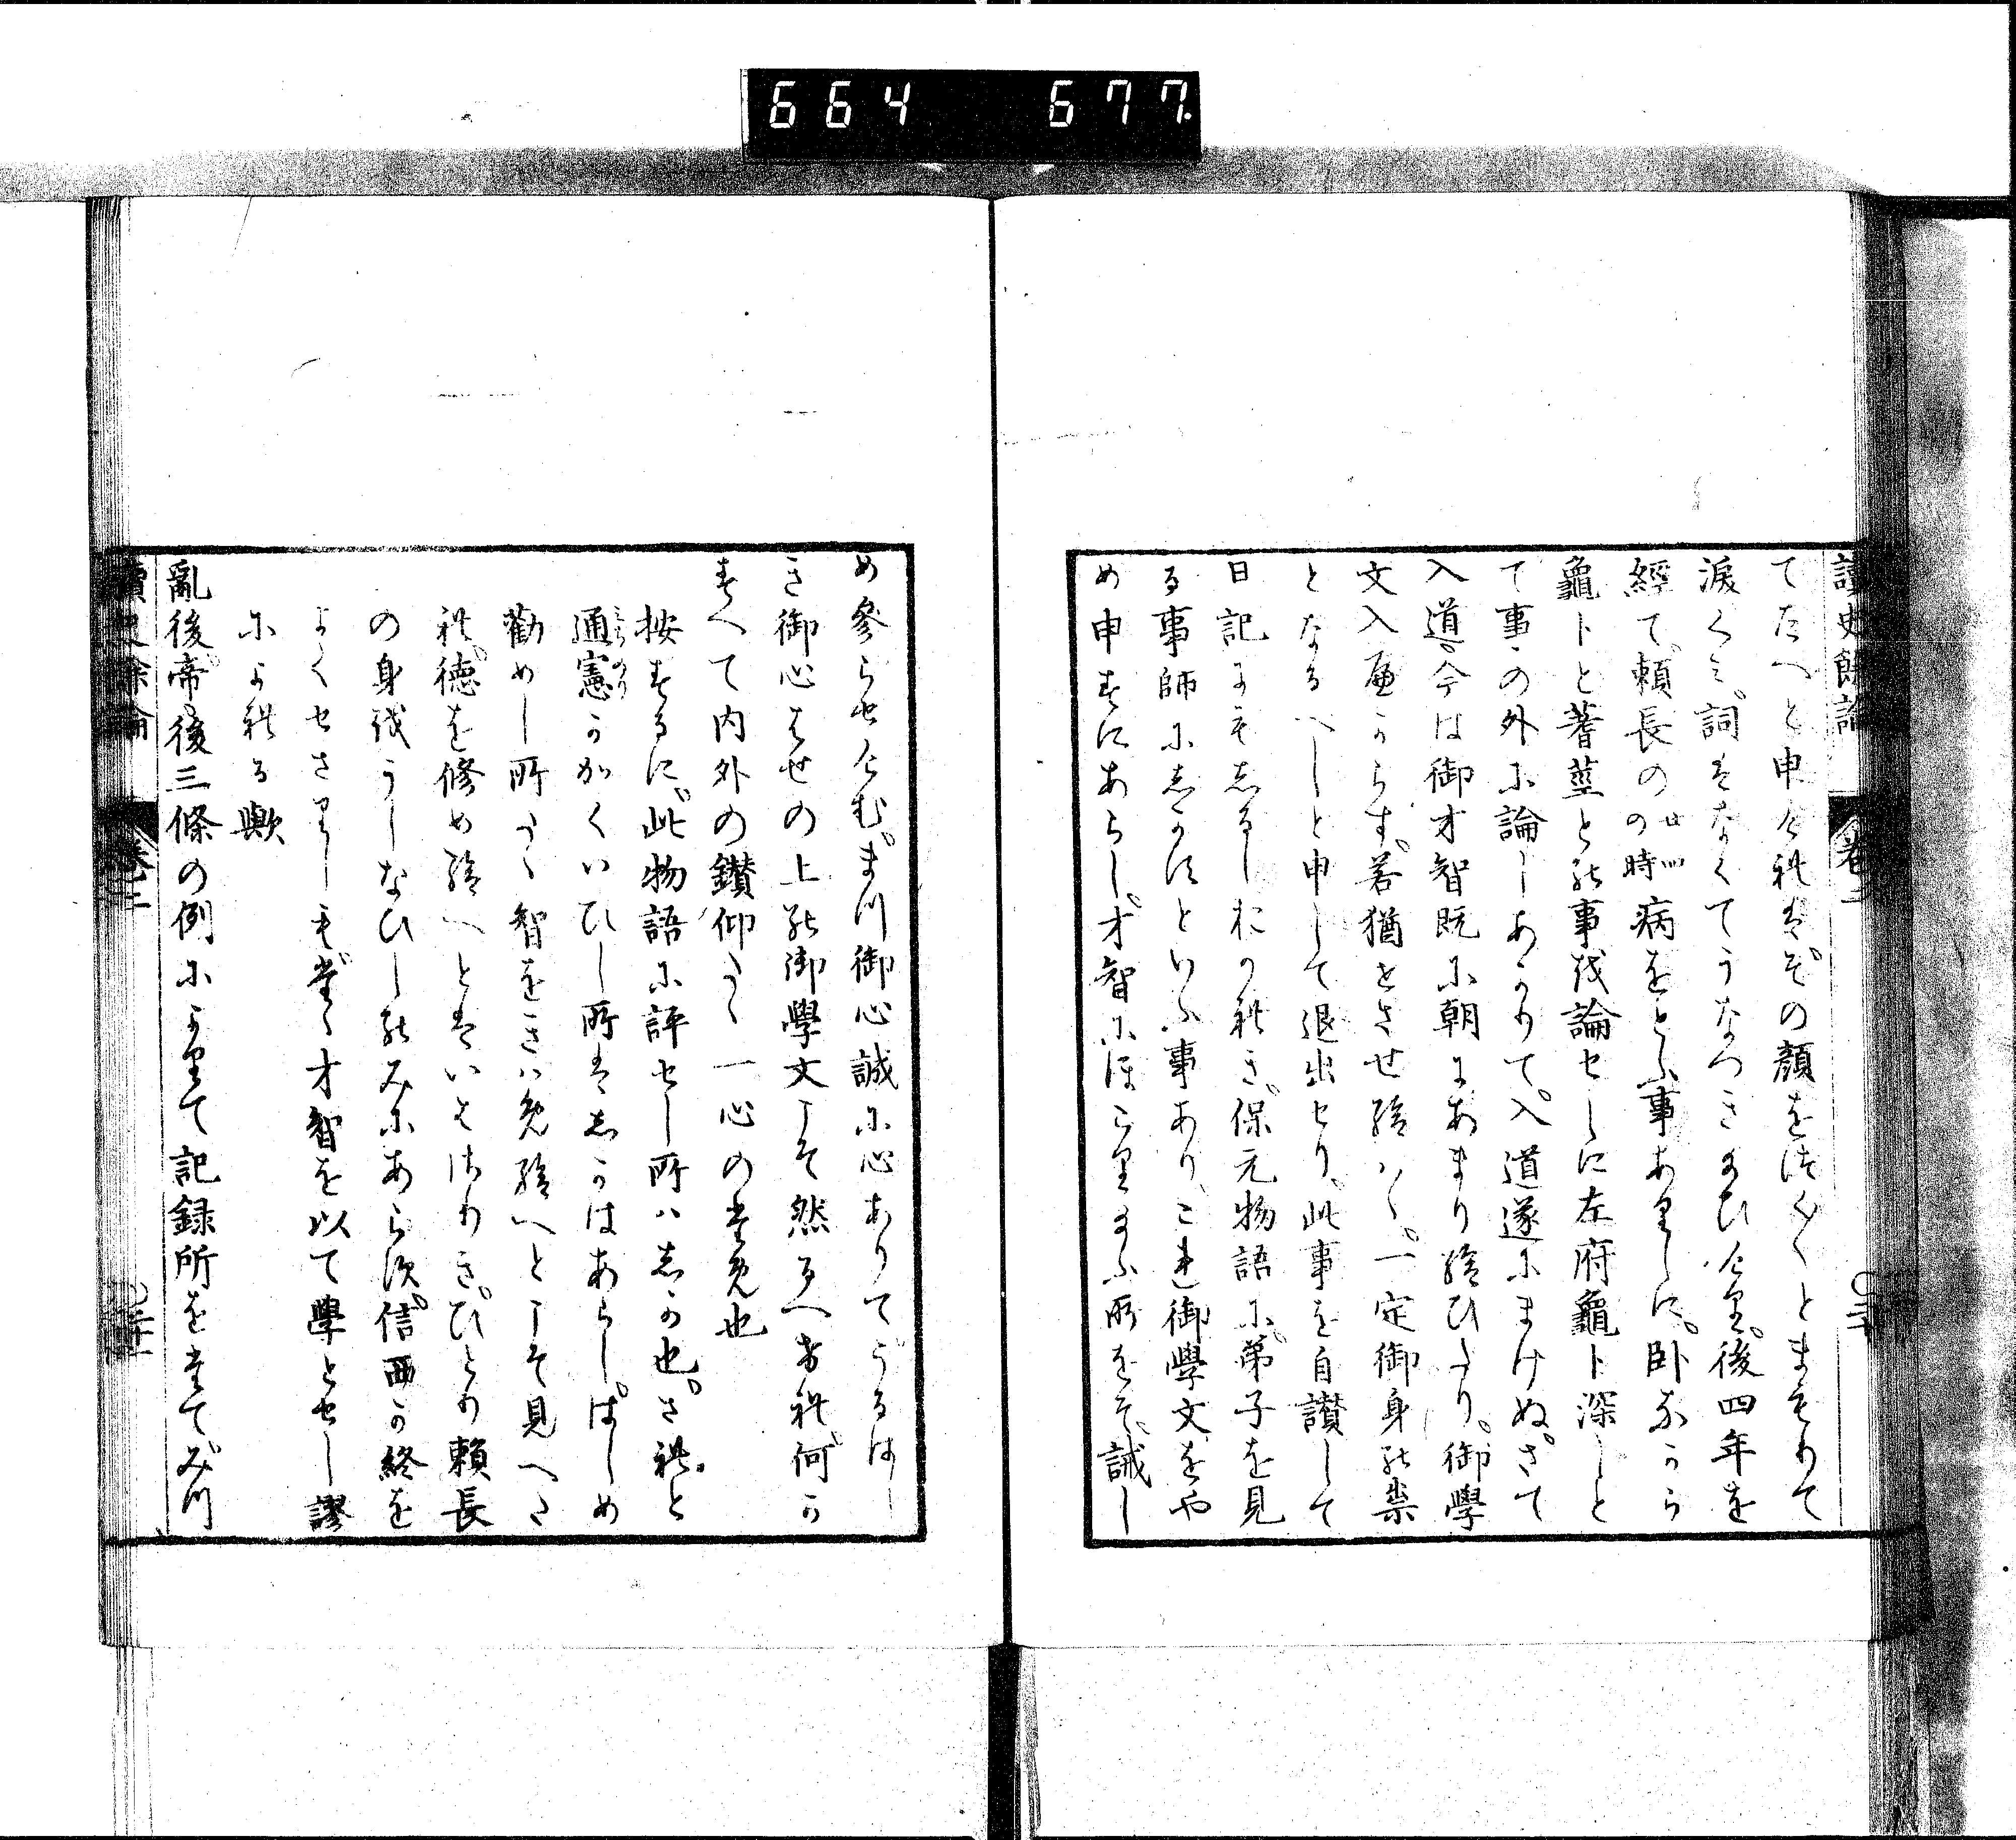 664 677.
讀史餘論 卷二
てたへと申されはその顔をつく〱とまもりて
涙くみ詞はなくてうなつきたまひけり後四年を
經て頼長の廿四の時病をとふ事ありしに臥なから
龜卜と蓍莖との事を論せしに左府龜卜深しと
て事の外に論しあかりて入道遂にまけぬさて
入道今は御才智既に朝にあまり給ひたり御學
文入へからす若猶せさせ給はゝ一定御身の祟
となるへしと申して退出せり此事を自讃して
日記にもしるしおかれき保元物語に弟子を見
る事師にしかすといふ事ありこれ御學文をや
め申すにあらし才智にほこりたまふ所をそ誡し
め參らせけむまつ御心誠に心ありてうるはし
き御心はせの上の御學文こそ然るへけれ何か
すへて内外の鑚仰たゝ一心のため也
按するに此物語に評せし所ハしか也されと
通憲かかくいひし所はしかはあらしはしめ
勸めし所たゝ智をきハめ給へとこそ見へた
れ徳を修め給へとはいはさりきひとり頼長
の身をうしなひしのみにあらす信西か終を
よくせさりしもたゝ才智を以て學とせし謬
による歟
亂後帝後三條の例によりて記録所をたてみつ
讀史餘論 卷二